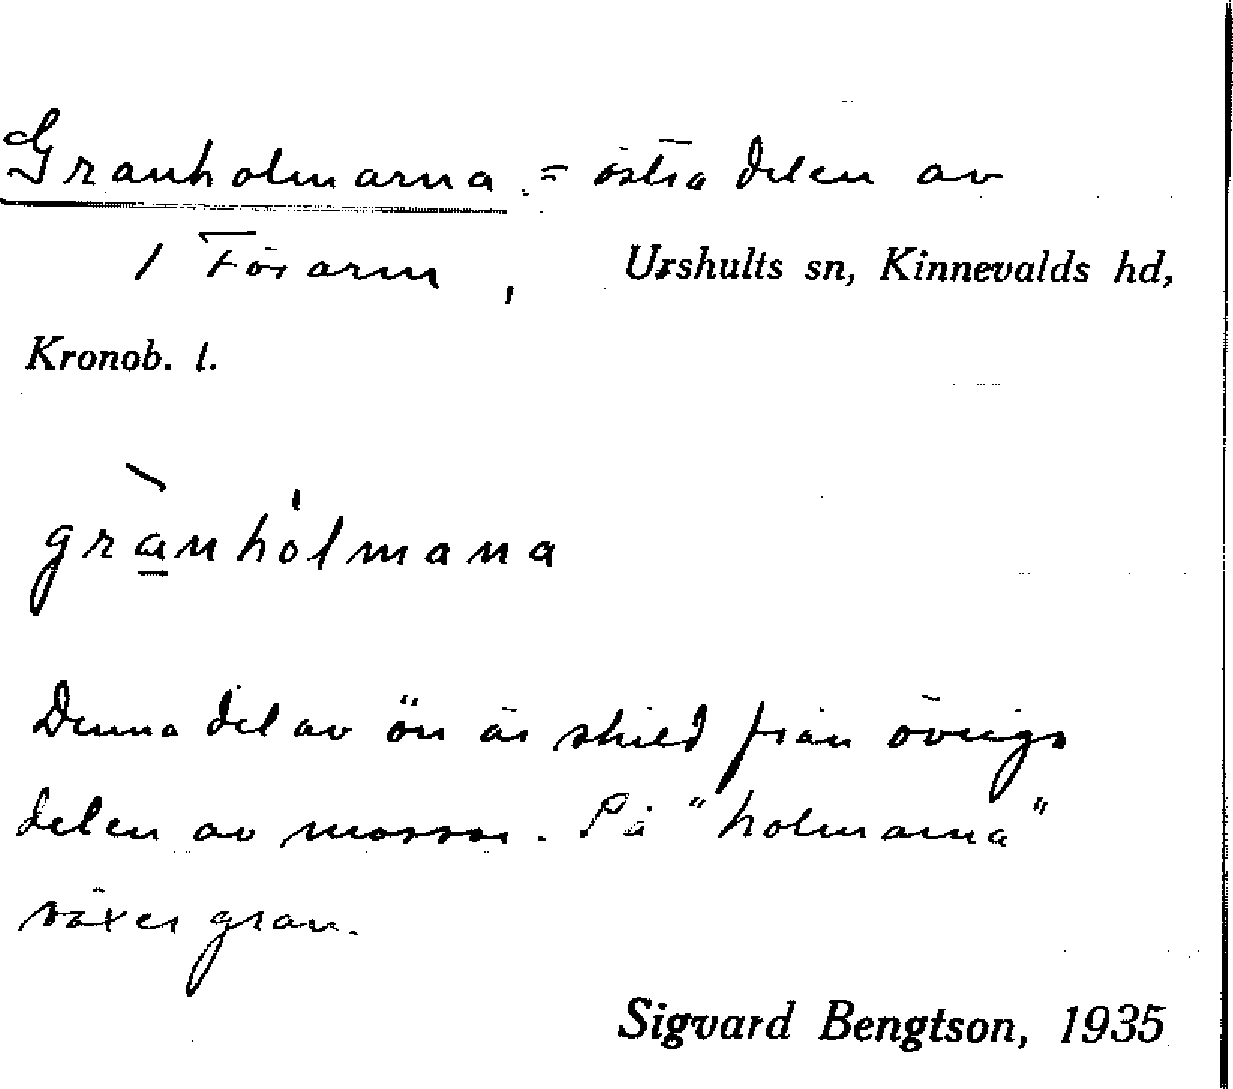 Granholmarna = östra delen av
1 Förarm, Urshults sn, Kinnevalds hd,
Kronob. l.
granholmana
Denna del av ön är skild från övriga
delen av mossar. På "holmarna"
växer gran.
Sigvard Bengtson, 1935